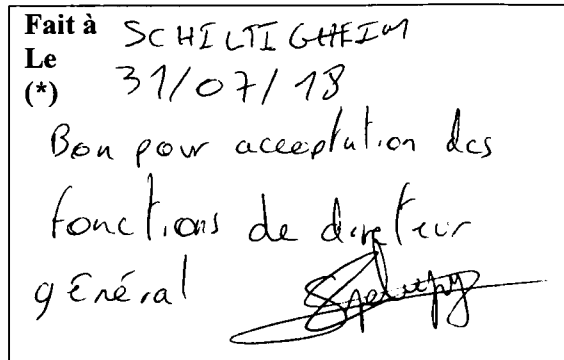 Fait à SCHILTIGHEIM
Le
(*) 31/07/18
Bon pour acceptation des
fonctions de directeur
général